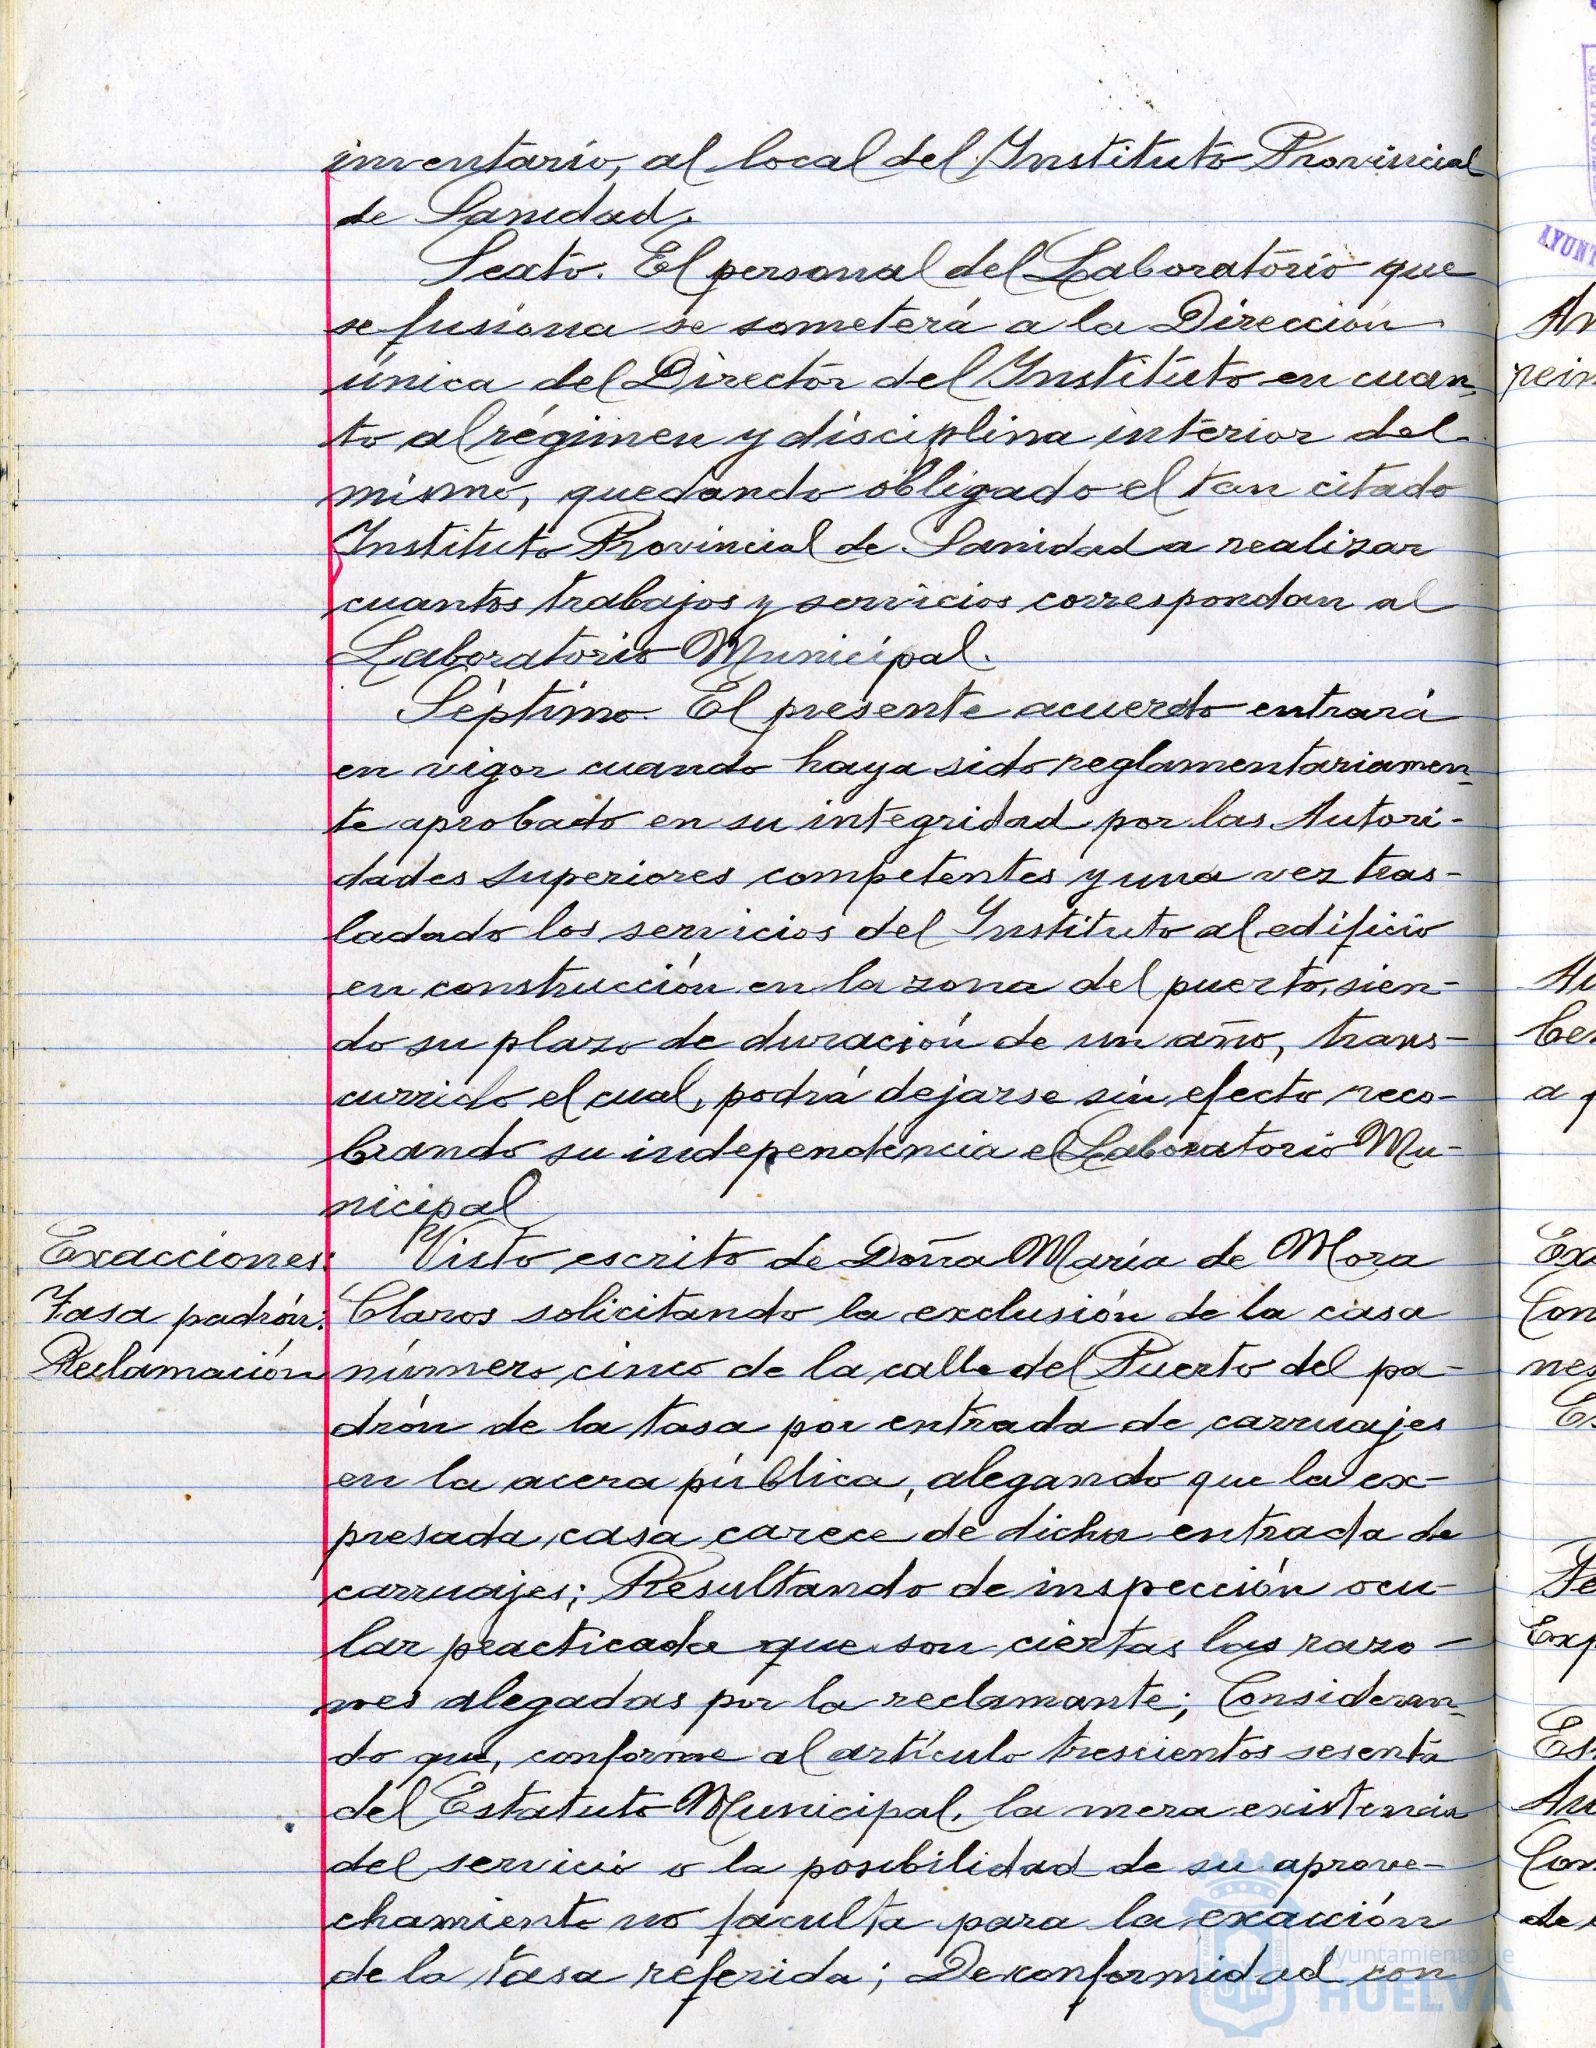 inventario, al local del Instituto Provincial
de Sanidad.
Sexto. El personal del Laboratorio que
se fusiona se someterá a la Dirección
única del Director del Instituto en cuan-
to al régimen y disciplina interior del
mismo, quedando obligado el tan citado
Instituto Provincial de Sanidad a realizar
cuantos trabajos y servicios correspondan al
Laboratorio Municipal.
Séptimo. El presente acuerdo entrará
en vigor cuando haya sido reglamentariamen-
te aprobado en su integridad por las Autori-
dades superiores competentes y una vez tras-
ladado los servicios del Instituto al edificio
en construcción en la zona del puerto, sien-
do su plazo de duración de un año, trans-
currido el cual, podrá dejarse sin efecto reco-
brando su independencia el Laboratorio Mu-
nicipal
Exacciones:
Tasa padrón:
Reclamación
Visto escrito de Doña María de Mora
Claros solicitando la exclusión de la casa
número cinco de la calle del Puerto del pa-
drón de la tasa por entrada de carruajes
en la acera pública, alegando que la ex-
presada casa carece de dicha entrada de
carruajes; Resultando de inspección ocu-
lar practicada que son ciertas las razo-
nes alegadas por la reclamante; Consideran-
do que, conforme al artículo trescientos sesenta
del Estatuto Municipal, la mera existencia
del servicio o la posibilidad de su aprove-
chamiento no faculta para la exacción
de la tasa referida; De conformidad con
Ayuntamiento de
HUELVA